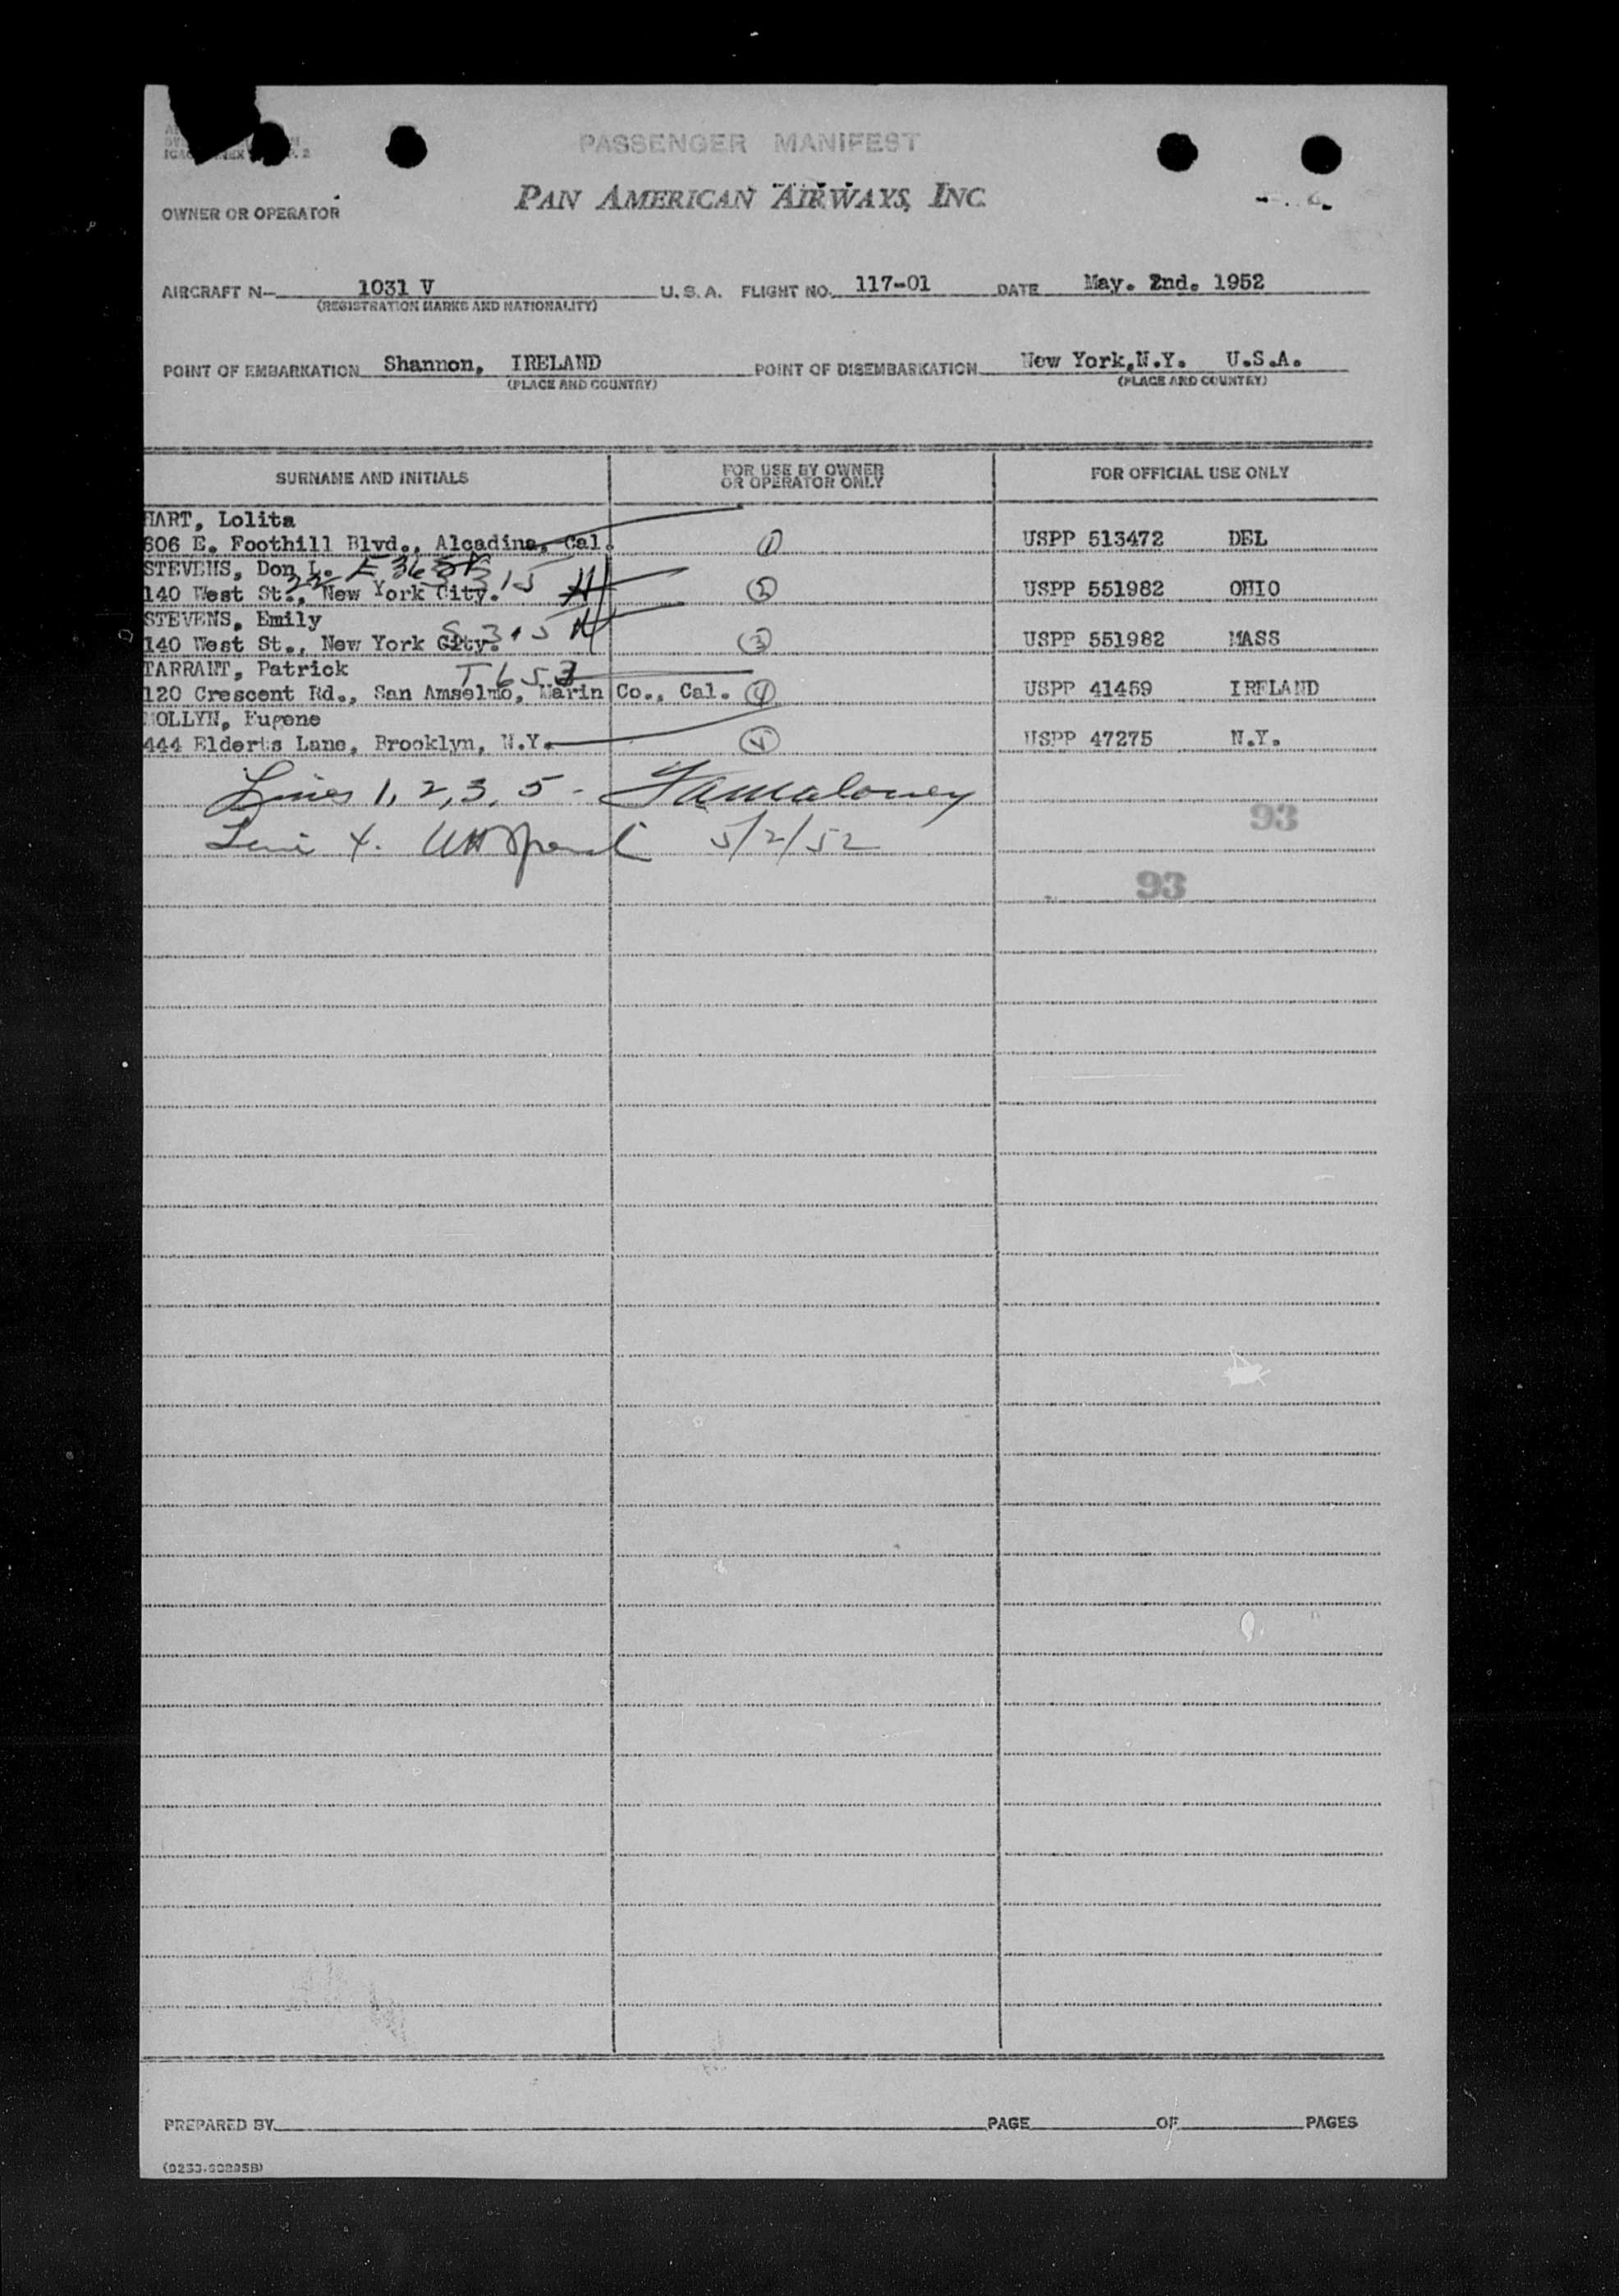 PASSENGER MANIFEST
PAN AMERICAN AIRWAYS, INC.
OWNER OR OPERATOR
AIRCRAFT N- 1031 V U. S. A. FLIGHT NO. 117-01 DATE May. 2nd. 1952
(REGISTRATION MARKS AND NATIONALITY)
POINT OF EMBARKATION Shannon, IRELAND POINT OF DISEMBARKATION New York,N.Y. U.S.A.
(PLACE AND COUNTRY) (PLACE AND COUNTRY)
SURNAME AND INITIALS FOR USE BY OWNER OR OPERATOR ONLY FOR OFFICIAL USE ONLY
HART, Lolita
606 E. Foothill Blvd., Alcadina, Cal. 1 USPP 513472 DEL
STEVENS, Don L.
140 West St., New York City. 315 2 USPP 551982 OHIO
STEVENS, Emily
140 West St., New York City. S 315 3 USPP 551982 MASS
TARRANT, Patrick T 653
120 Crescent Rd., San Amselmo, Marin Co., Cal. 4 USPP 41459 IRELAND
MOLLYN, Eugene
444 Elderts Lane, Brooklyn, N.Y. 5 USPP 47275 N.Y.
Lines 1, 2, 3, 5 - Maloney
93
Line 4. 5/2/52
93
PREPARED BY PAGE OF PAGES